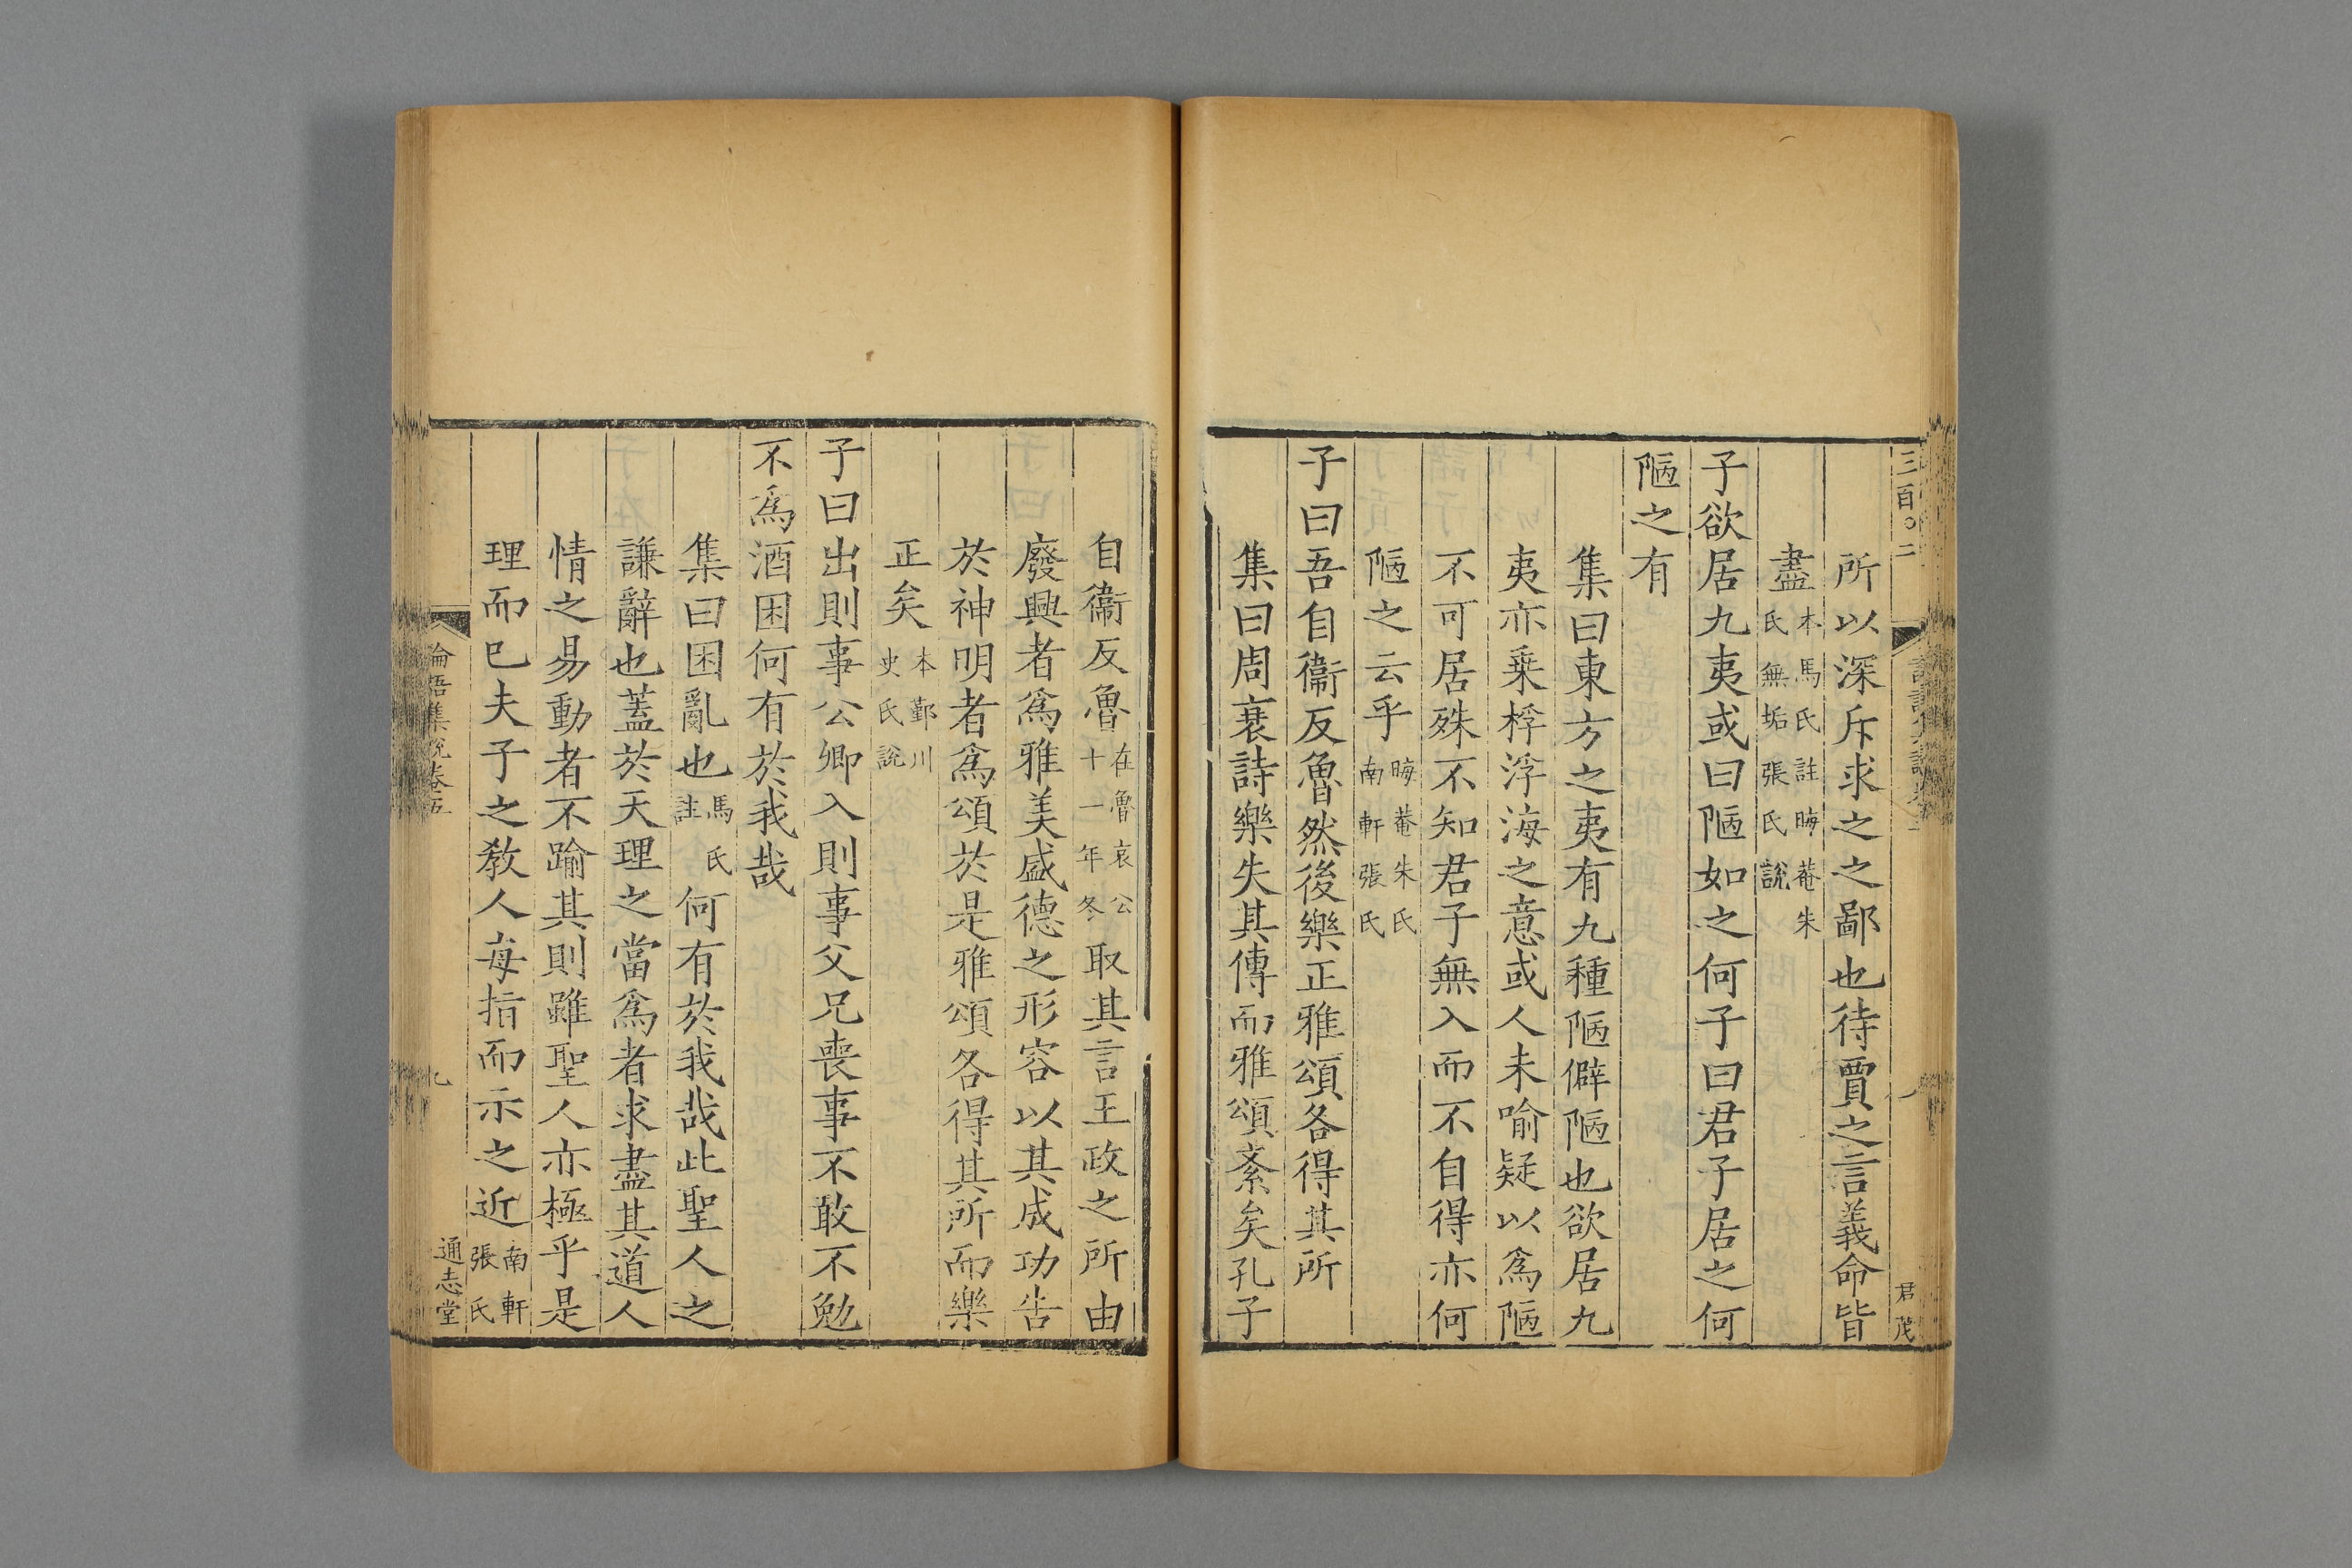 三百〇二
君茂
所以深斥求之之鄙也待賈之言義命皆
盡本馬氏註晦菴朱氏無垢張氏說
子欲居九夷或曰陋如之何子曰君子居之何
陋之有
集曰東方之夷有九種陋僻陋也欲居九
夷亦乗桴浮海之意或人未喻疑以爲陋
不可居殊不知君子無入而不自得亦何
陋之云乎晦菴朱氏南軒張氏
子曰吾自衞反魯然後樂正雅頌各得其所
集曰周衰詩樂失其傳而雅頌紊矣孔子
自衞反魯在魯哀公十一年冬取其言王政之所由
廢興者爲雅美盛德之形容以其成功告
於神明者爲頌於是雅頌各得其所而樂
正矣本鄞川史氏說
子曰出則事公卿入則事父兄喪事不敢不勉
不爲酒困何有於我哉
集曰困亂也馬氏註何有於我哉此聖人之
謙辭也蓋於天理之當爲者求盡其道人
情之易動者不踰其則雖聖人亦極乎是
理而已夫子之教人每指而示之近南軒張氏
論語集說卷五
九
通志堂